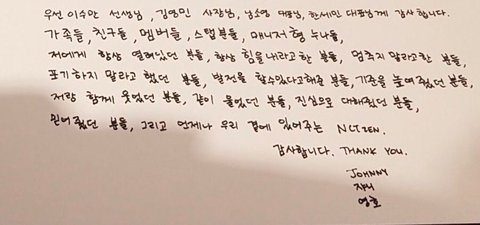 우선 이수만 선생님, 김영민 사장님, 남소영 대표님, 한세민 대표님께 감사합니다.
가족들, 친구들, 멤버들, 스탭분들, 매니저 형 누나들,
저에게 항상 열려있던 분들, 항상 힘을내라고 한 분들, 멈추지 말라고한 분들,
포기하지 말라고 했던 분들, 발전을 할수있다고해준 분들, 기준을 높여주셨던 분들,
저랑 함께 웃었던 분들, 같이 울었던 분들, 진심으로 대해줬던 분들,
믿어줬던 분들, 그리고 언제나 우리 곁에 있어주는 NCTZEN.
감사합니다. THANK YOU.
JOHNNY
쟈니
영호